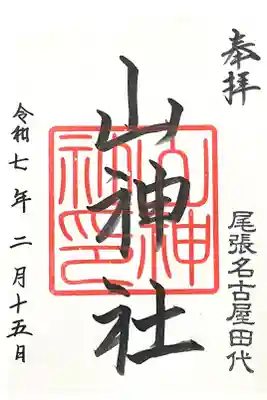 奉拝
尾張名古屋田代
山神社
山神
社印
令和七年二月十五日